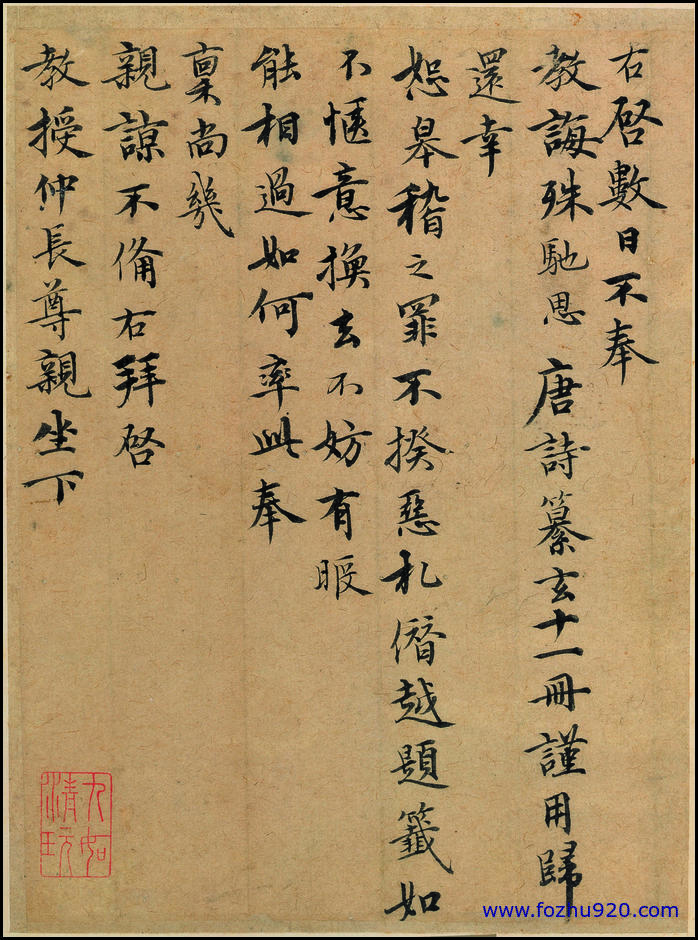 右啓數日不奉
教誨殊馳思唐詩纂玄十一冊謹用歸
還幸
恕辠稽之罪不揆惡札僭越題籤如
不愜意換去不妨有暇
能相過如何率此奉
稟尚幾
親諒不備右拜啓
教授仲長尊親坐下
九如清玩
www.fozhu920.com